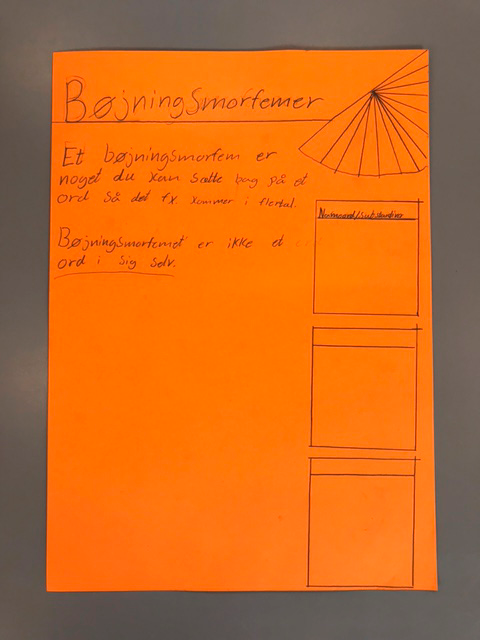 Bøjningsmorfemer
Et bøjningsmorfem er
noget du kan sætte bag på et
ord så det fx. kommer i flertal.
Bøjningsmorfemet er ikke et
ord i sig selv.
Navneord/Substantiver